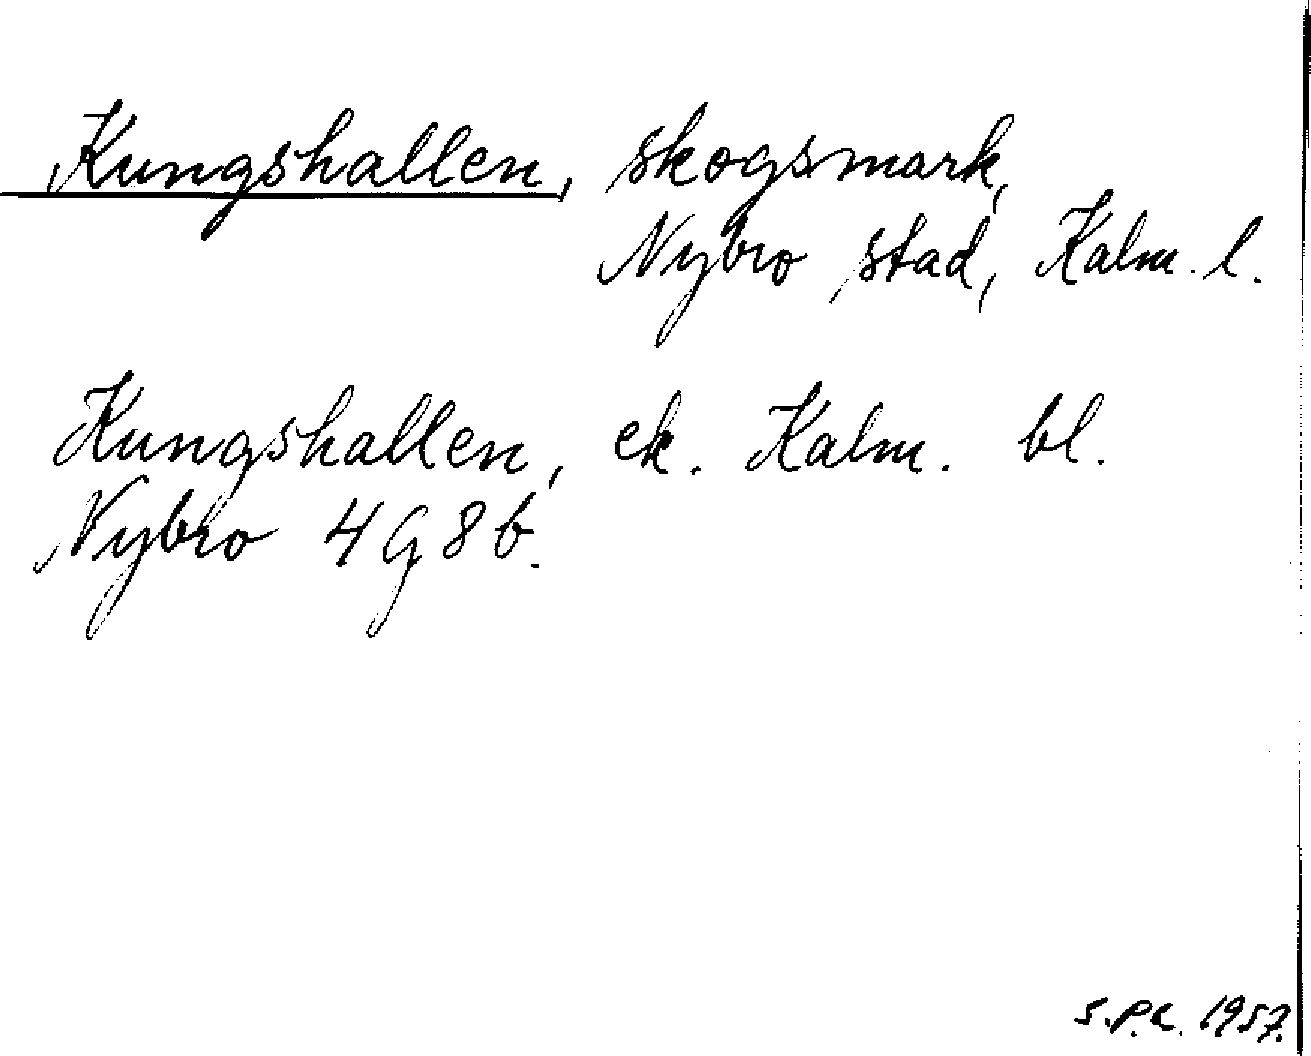 Kungshallen, skogsmark,
Nybro stad, Kalm. l.
Kungshallen, ek. Kalm. bl.
Nybro 4G8b.
S.P.C. 1957.